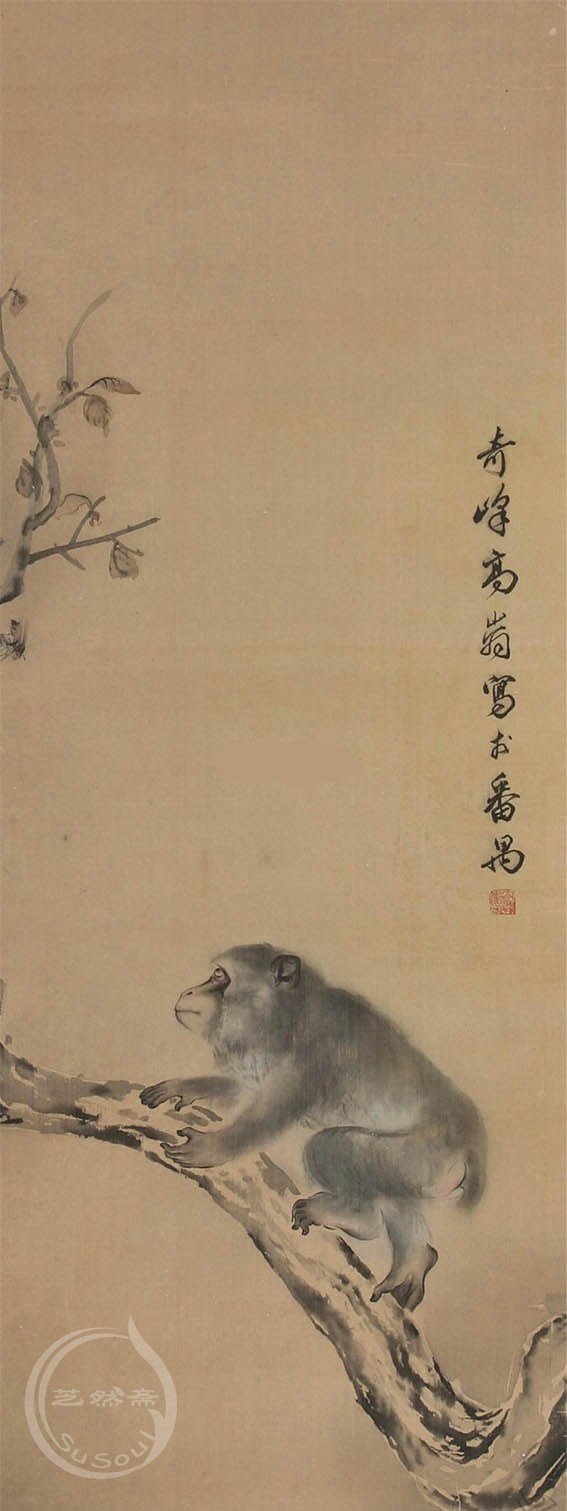 奇峰高嵡寫於番禺
芝然斋
SuSoul